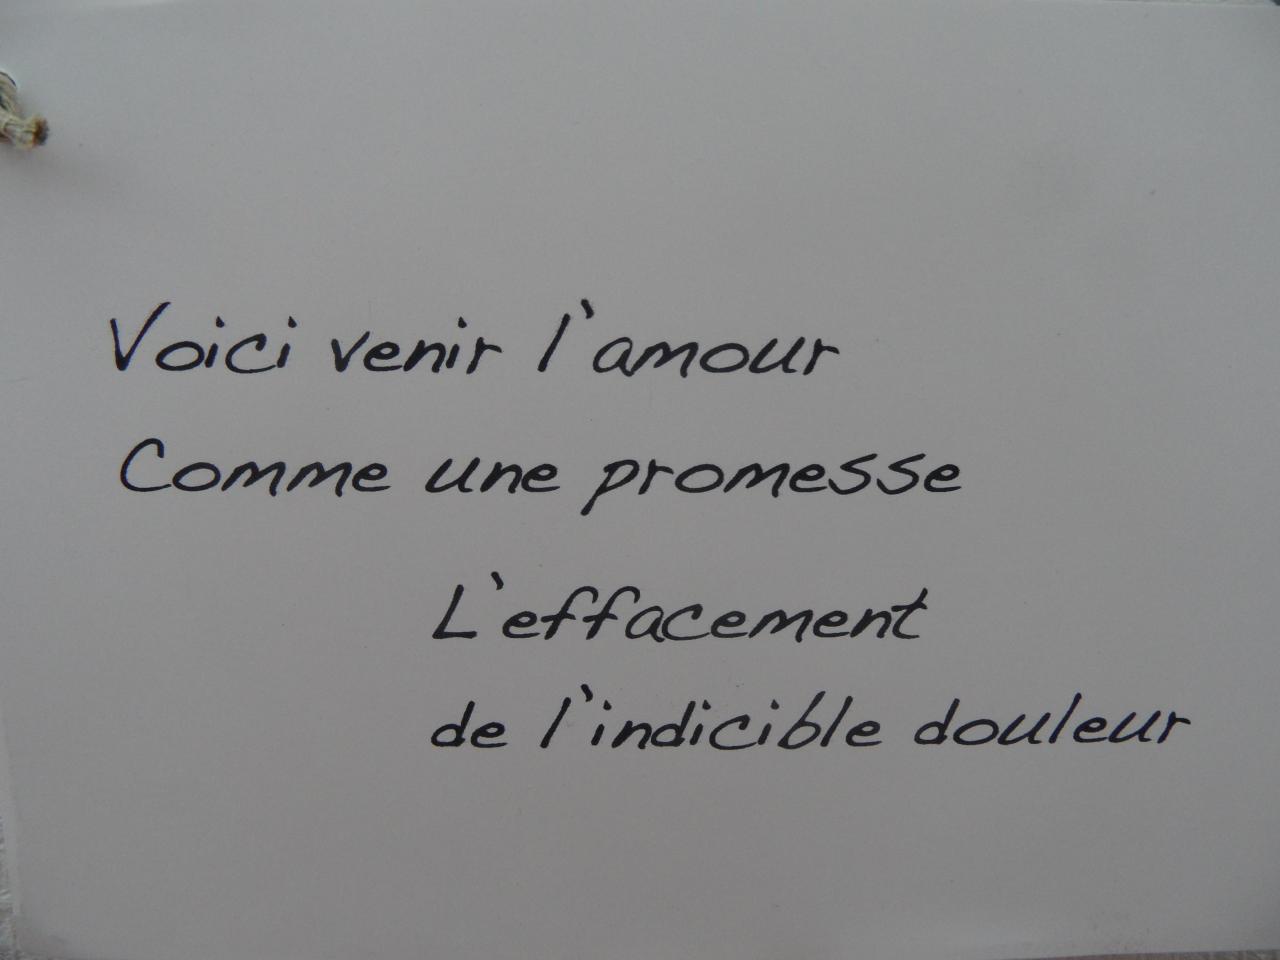 Voici venir l'amour
Comme une promesse
L'effacement
de l'indicible douleur